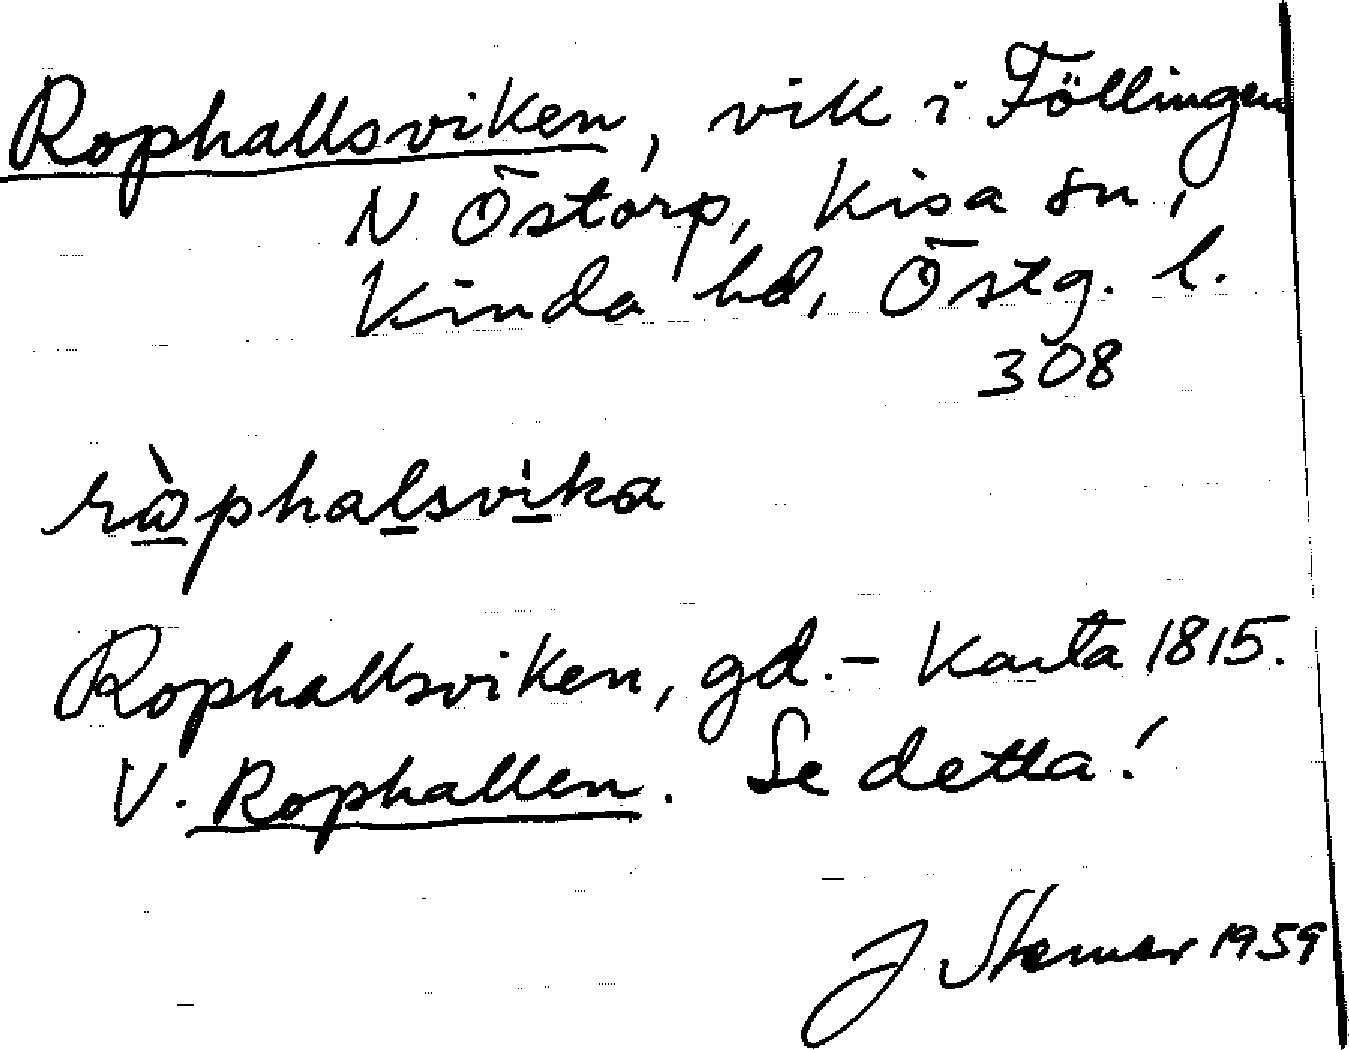 Rophallsviken, vik i Föllingen
N Östorp, Kisa sn,
Kinda hd, Östg. l.
308
rὼphalsvika
Rophallsviken, gd. – Karta 1815.
V. Rophallen. Se detta!
J 1959